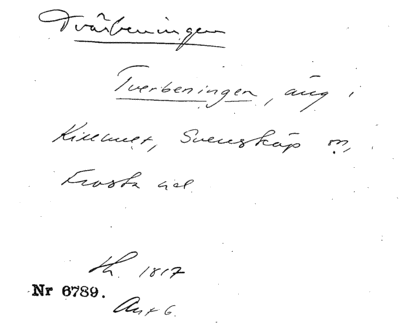 Tvärbeningen
Tverbeningen, äng i
Killhult, Svensköp sn,
Frosta hd
Lh. 1817
Nr 6789.
Akt 6.